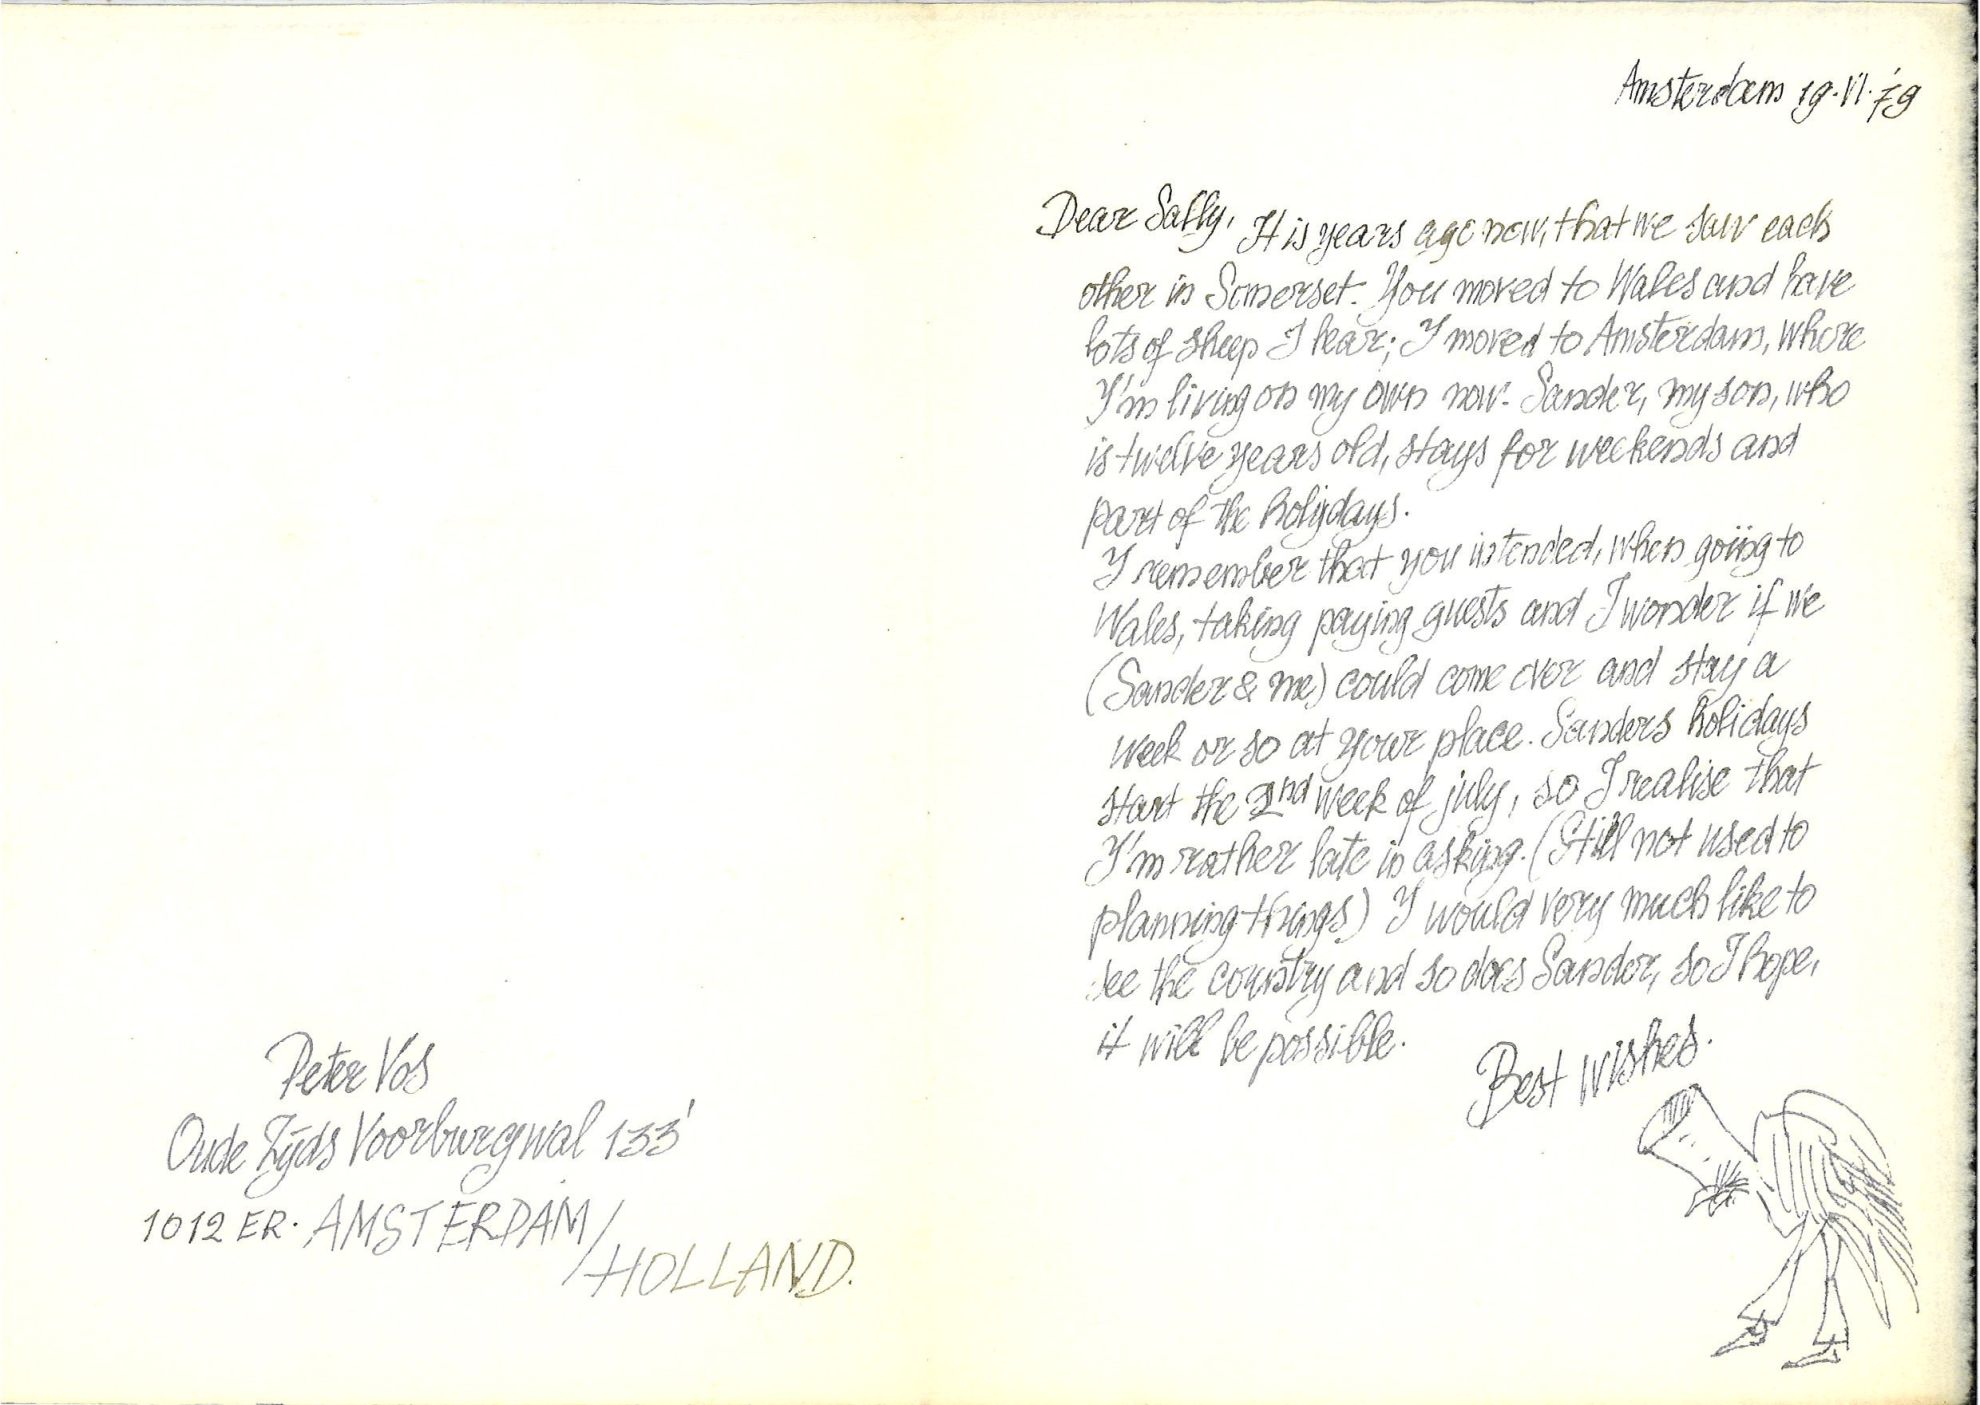 Peter Vos
Oude Zijds Voorburgwal 133'
1012 ER. AMSTERDAM/
HOLLAND.
Amsterdam 19.VI.'79
Dear Sally, It is years ago now, that we saw each
other in Somerset. You moved to Wales and have
lots of sheep I hear; I moved to Amsterdam, where
I'm living on my own now. Sander, my son, who
is twelve years old, stays for weekends and
part of the holijdays.
I remember that you intended, when going to
Wales, taking paying guests and I wonder if we
(Sander & me) could come over and stay a
week or so at your place. Sanders holidays
start the 2nd week of july, so I realise that
I'm rather late in asking. (Still not used to
planning things) I would very much like to
see the country and so does Sander, so I hope,
it will be possible.
Best wishes.